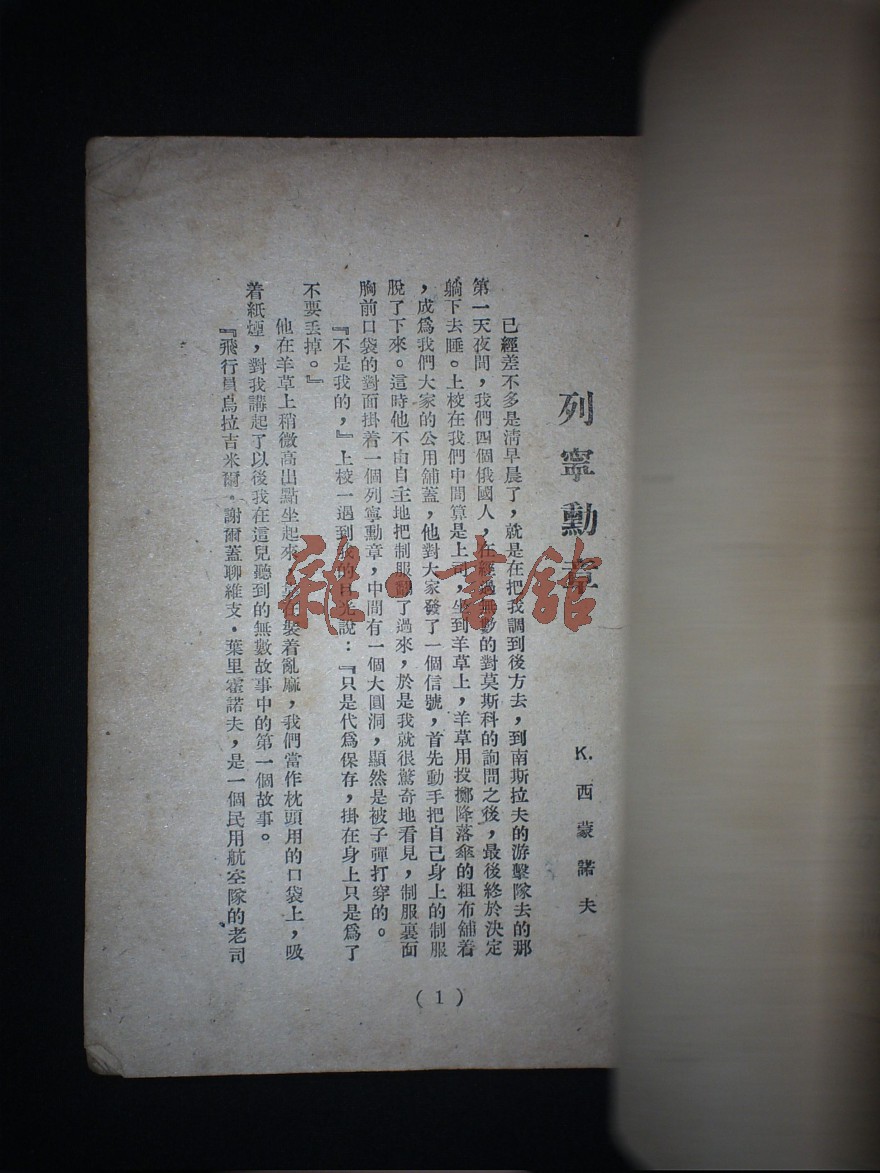 列寧勳章
K. 西蒙諾夫
已經差不多是淸早晨了，就是在把我調到後方去，到南斯拉夫的游擊隊去的那
第一天夜間，我們四個俄國人，在經過無數的對莫斯科的詢問之後，最後終於決定
躺下去睡。上校在我們中間算是上司，坐到羊草上，羊草用投擲降落傘的粗布舖着
，成爲我們大家的公用舖蓋，他對大家發了一個信號，首先動手把自己身上的制服
脫了下來。這時他不由自主地把制服翻了過來，於是我就很驚奇地看見，制服裏面
胸前口袋的對面掛着一個列寧勳章，中間有一個大圓洞，顯然是被子彈打穿的。
『不是我的，』上校一遇到我的目光說：『只是代爲保存，掛在身上只是爲了
不要丢掉。』
他在羊草上稍微高出點坐起來，在裝着亂麻，我們當作枕頭用的口袋上，吸
着紙煙，對我講起了以後我在這兒聽到的無數故事中的第一個故事。
『飛行員烏拉吉米爾。謝爾蓋聊維支·葉里霍諾夫，是一個民用航空隊的老司
（1）
雜·書館